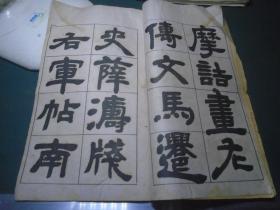 摩詰畫左
傳文馬遷
史薛濤牋
右軍帖南